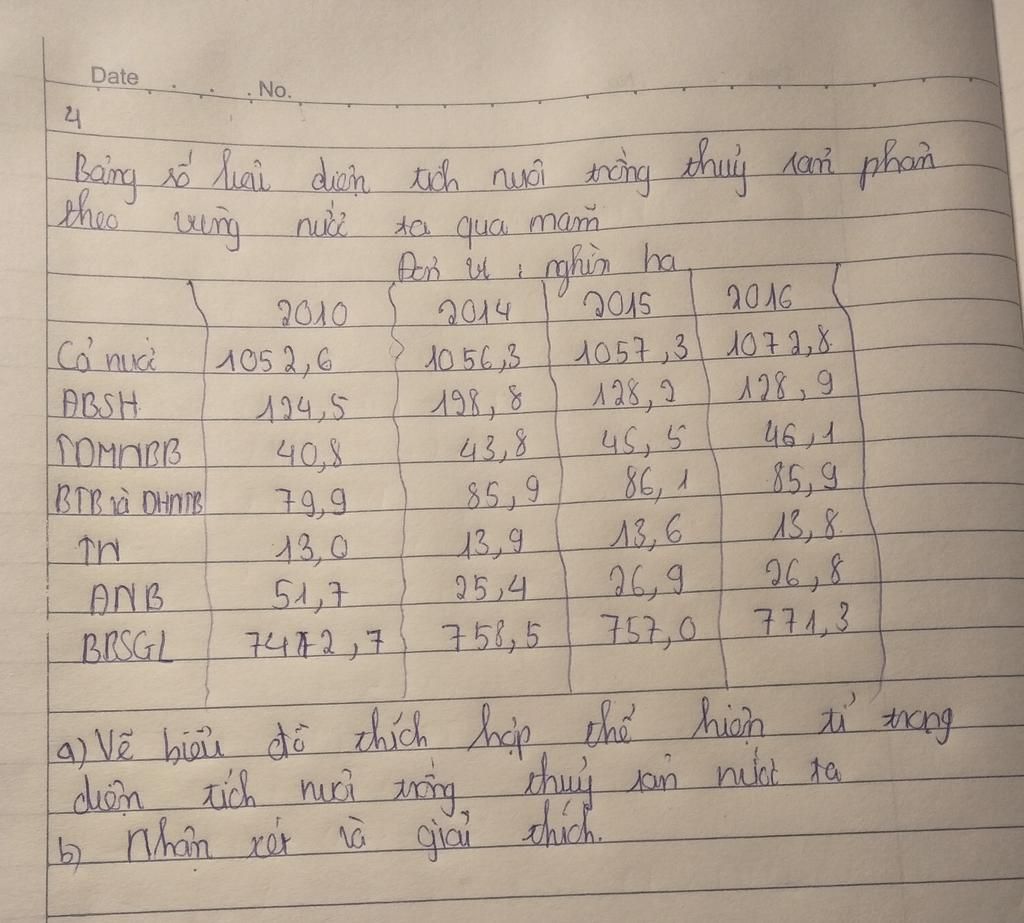 Date . . . . No.
4
Bảng số liệu diện tích nuôi trồng thuỷ sản phân
theo vùng nước ta qua năm
Đơn vị : nghìn ha
2010 2014 2015 2016
Cả nước 1052,6 1056,3 1057,3 1072,8
ĐBSH 124,5 128,8 128,2 128,9
TDMNBB 40,8 43,8 45,5 46,1
BTB và DHNTB 79,9 85,9 86,1 85,9
TN 13,0 13,9 13,6 13,8
ĐNB 51,7 25,4 26,9 26,8
ĐBSCL 742,7 758,5 757,0 771,3
a) Vẽ biểu đồ thích hợp thể hiện tỉ trọng
diện tích nuôi trồng thuỷ sản nước ta
b) Nhận xét và giải thích.